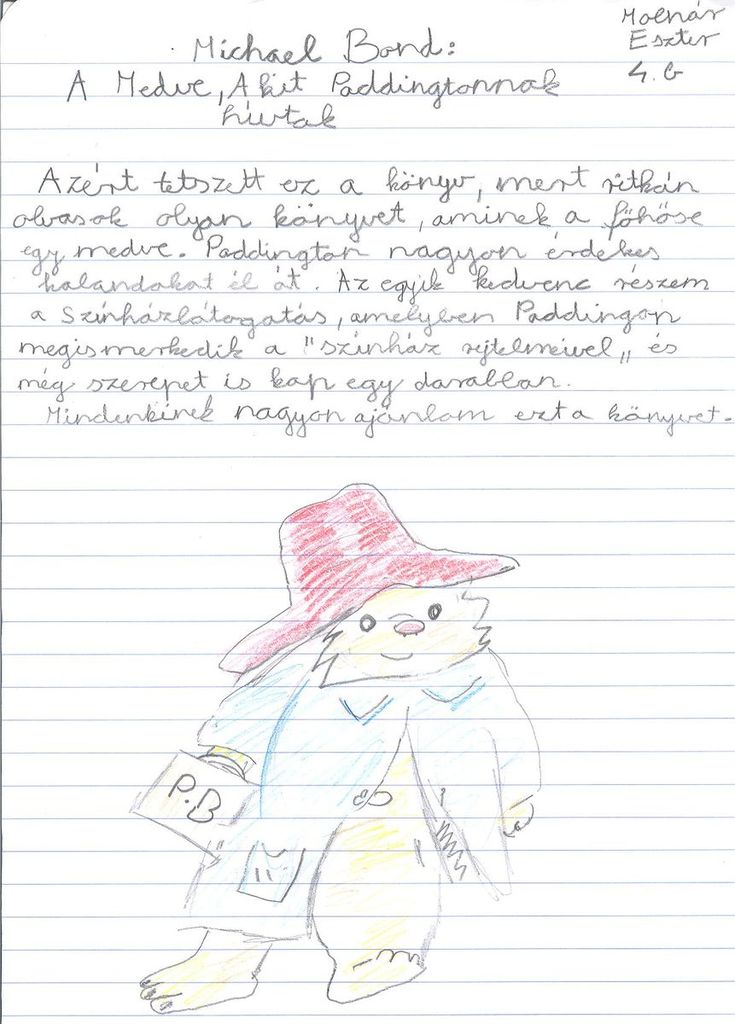 Molnár
Eszter
4. b
Michael Bond:
A Medve, Akit Paddingtonnak
hívtak
Azért tetszett ez a könyv, mert ritkán
olvasok olyan könyvet, aminek a főhőse
egy medve. Paddington nagyon érdekes
kalandokat él át. Az egyik kedvenc részem
a Színházlátogatás, amelyben Paddingon
megismerkedik a "színház rejtelmeivel„ és
még szerepet is kap egy darabban.
Mindenkinek nagyon ajánlom ezt a könyvet.
P.B